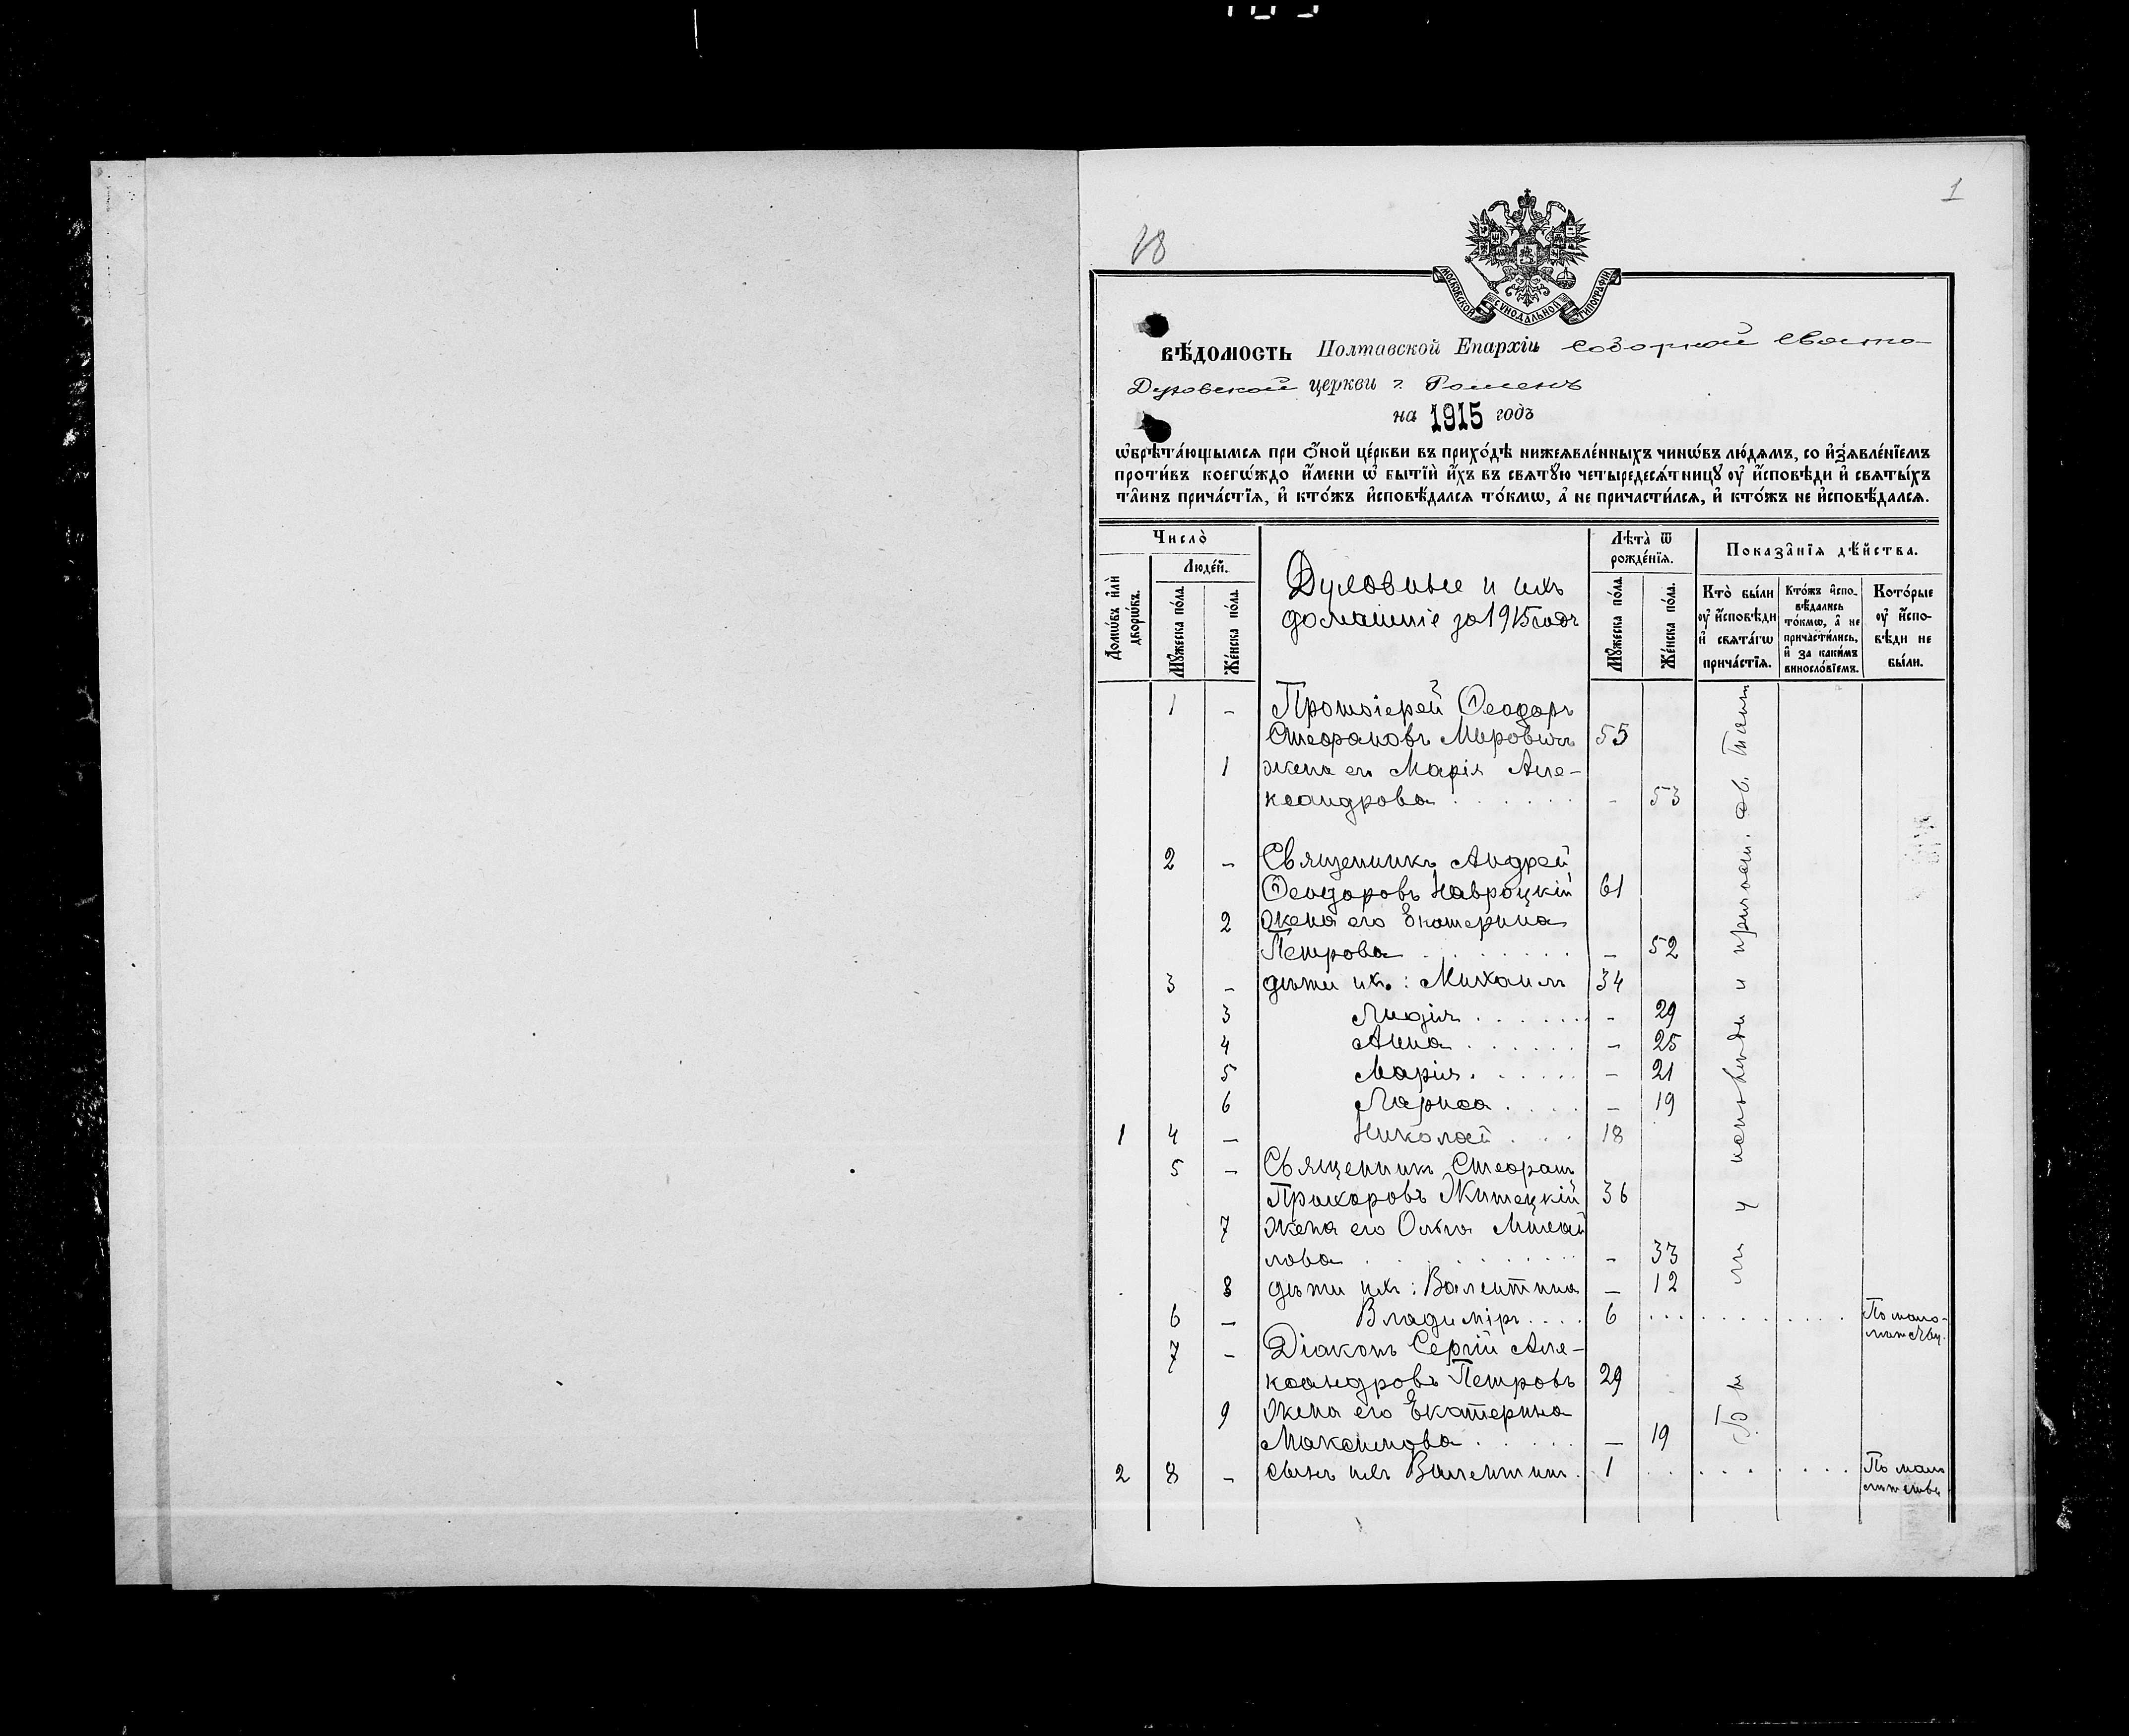 1
18
МОСКОВСКОЙ СѴНОДАЛЬНОЙ ТИПОГРАФІИ
ВѢ́ДОМОСТЬ Полтавской Епархіи Соборной Свято-
Духовской церкви г. Роменъ
на 1915 годъ
ѡ҆брѣта́ющымсѧ при ѻ҆́ной це́ркви въ прихо́дѣ нижеѧвле́нныхъ чинѡ́въ лю́дѧмъ, со и҆з̾ѧвле́нїемъ
проти́въ коегѡ́ждо и҆́мени ѡ҆ бытїѝ и҆́хъ въ свѧтꙋ́ю четыредесѧ́тницꙋ ᲂу҆ и҆́сповѣди и҆ свѧты́хъ
та̑инъ прича́стїѧ, и҆ кто́жъ и҆сповѣ́далсѧ то́кмѡ, а҆ не причасти́лсѧ, и҆ кто́жъ не и҆сповѣ́далсѧ.
Число̀
Домѡ́въ и҆лѝ дворѡ́въ.
Люде́й.
Мꙋ́жеска по́ла.
Же́нска по́ла.
Духовные и ихъ
домашніе за 1915 годъ
Лѣта̀ ѿ рожде́нїѧ.
Мꙋ́жеска по́ла.
Же́нска по́ла.
Показа̑нїѧ дѣ́йства.
Кто̀ бы́ли ᲂу҆ и҆́сповѣди и҆ свѧта́гѡ прича́стїѧ.
Кто́жъ и҆спо-вѣ́дались то́кмѡ, а҆ не причасти́лись, и҆ за каки́мъ винослóвїемъ.
Кото́рые ᲂу҆ и҆́спо-вѣди не бы́ли.
1 - Протоіерей Ѳеодоръ
Стефановъ Мировичъ 55
1 жена его Марія Але-
ксандрова - 53
2 - Священникъ Андрей
Ѳеодоровъ Навроцкій 61
2 Жена его Екатерина
Петрова - 52
3 - дѣти ихъ: Михаилъ 34
3 Лидія - 29
4 Анна - 25
5 Марія - 21
6 Лариса - 19
1 4 - Николай 18
5 - Священникъ Стефанъ
Прохоровъ Житецкій 36
7 Жена его Ольга Михай
лова - 33
8 дѣти ихъ: Валентина - 12
6 - Владиміръ 6 По мало-
лѣтству.
7 - Діаконъ Сергій Але-
ксандровъ Петровъ 29
9 Жена его Екатерина
Максимова - 19
2 8 - сынъ ихъ Валентинъ 1 По мало
лѣтству
Были у исповѣди и причаст. св. Таинъ